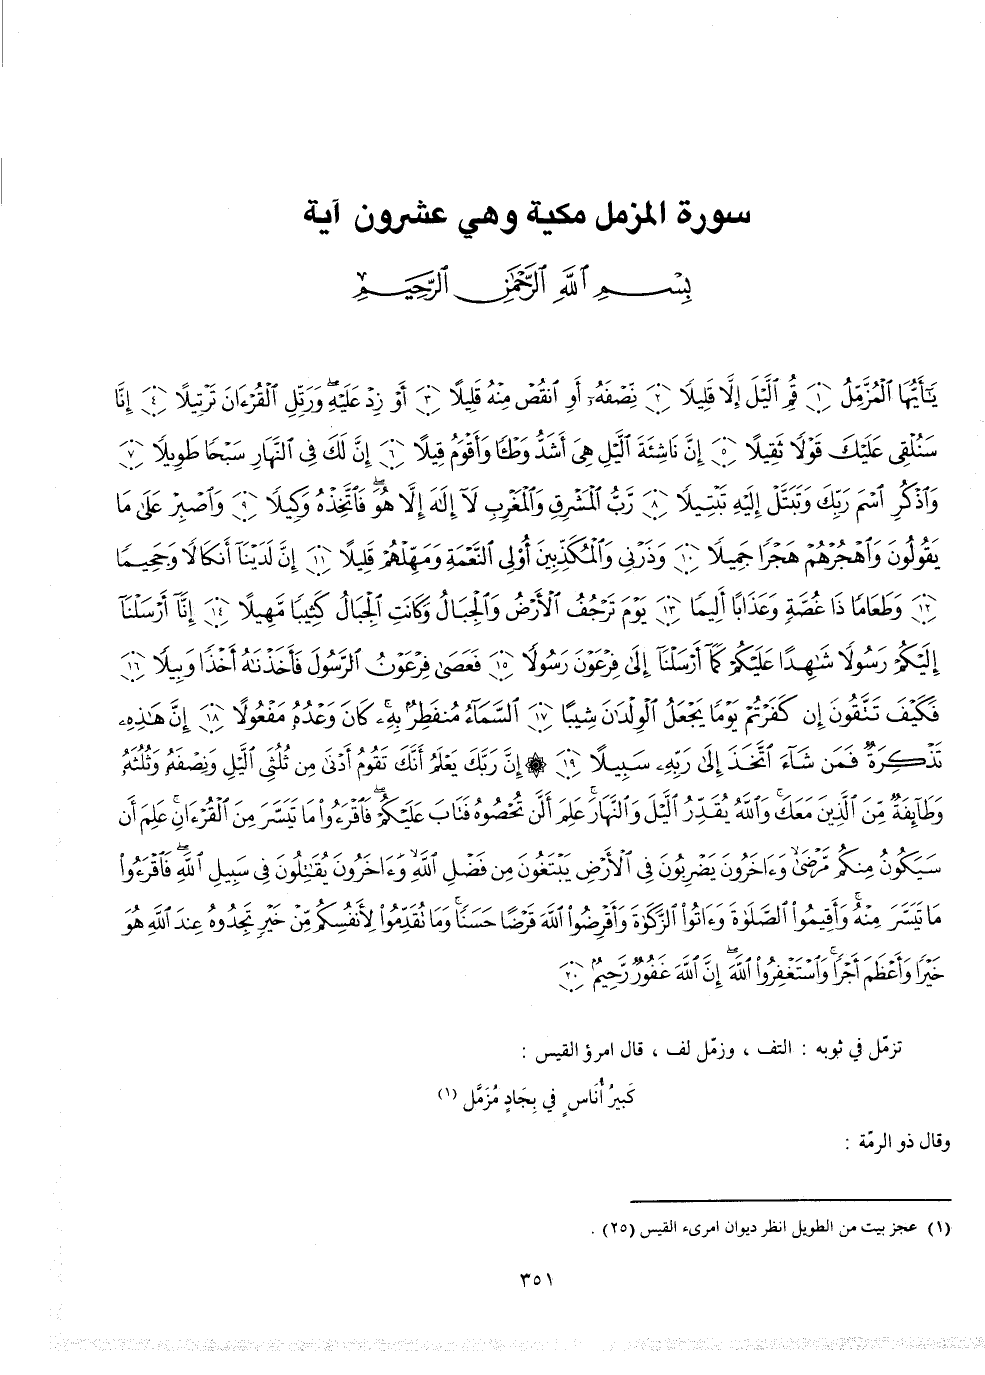 سورة المزمل مكية وهي عشرون آية
بِسْمِ ٱللَّهِ ٱلرَّحْمَٰنِ ٱلرَّحِيمِ
يَٰٓأَيُّهَا ٱلْمُزَّمِّلُ ١ قُمِ ٱلَّيْلَ إِلَّا قَلِيلًا ٢ نِّصْفَهُۥٓ أَوِ ٱنقُصْ مِنْهُ قَلِيلًا ٣ أَوْ زِدْ عَلَيْهِ وَرَتِّلِ ٱلْقُرْءَانَ تَرْتِيلًا ٤ إِنَّا
سَنُلْقِى عَلَيْكَ قَوْلًا ثَقِيلًا ٥ إِنَّ نَاشِئَةَ ٱلَّيْلِ هِىَ أَشَدُّ وَطْـًٔا وَأَقْوَمُ قِيلًا ٦ إِنَّ لَكَ فِى ٱلنَّهَارِ سَبْحًا طَوِيلًا ٧
وَٱذْكُرِ ٱسْمَ رَبِّكَ وَتَبَتَّلْ إِلَيْهِ تَبْتِيلًا ٨ رَّبُّ ٱلْمَشْرِقِ وَٱلْمَغْرِبِ لَآ إِلَٰهَ إِلَّا هُوَ فَٱتَّخِذْهُ وَكِيلًا ٩ وَٱصْبِرْ عَلَىٰ مَا
يَقُولُونَ وَٱهْجُرْهُمْ هَجْرًا جَمِيلًا ١٠ وَذَرْنِى وَٱلْمُكَذِّبِينَ أُو۟لِى ٱلنَّعْمَةِ وَمَهِّلْهُمْ قَلِيلًا ١١ إِنَّ لَدَيْنَآ أَنكَالًا وَجَحِيمًا
١٢ وَطَعَامًا ذَا غُصَّةٍ وَعَذَابًا أَلِيمًا ١٣ يَوْمَ تَرْجُفُ ٱلْأَرْضُ وَٱلْجِبَالُ وَكَانَتِ ٱلْجِبَالُ كَثِيبًا مَّهِيلًا ١٤ إِنَّآ أَرْسَلْنَآ
إِلَيْكُمْ رَسُولًا شَٰهِدًا عَلَيْكُمْ كَمَآ أَرْسَلْنَآ إِلَىٰ فِرْعَوْنَ رَسُولًا ١٥ فَعَصَىٰ فِرْعَوْنُ ٱلرَّسُولَ فَأَخَذْنَٰهُ أَخْذًا وَبِيلًا ١٦
فَكَيْفَ تَتَّقُونَ إِن كَفَرْتُمْ يَوْمًا يَجْعَلُ ٱلْوِلْدَٰنَ شِيبًا ١٧ ٱلسَّمَآءُ مُنفَطِرٌۢ بِهِۦ كَانَ وَعْدُهُۥ مَفْعُولًا ١٨ إِنَّ هَٰذِهِۦ
تَذْكِرَةٌ فَمَن شَآءَ ٱتَّخَذَ إِلَىٰ رَبِّهِۦ سَبِيلًا ١٩ ۞ إِنَّ رَبَّكَ يَعْلَمُ أَنَّكَ تَقُومُ أَدْنَىٰ مِن ثُلُثَىِ ٱلَّيْلِ وَنِصْفَهُۥ وَثُلُثَهُۥ
وَطَآئِفَةٌ مِّنَ ٱلَّذِينَ مَعَكَ وَٱللَّهُ يُقَدِّرُ ٱلَّيْلَ وَٱلنَّهَارَ عَلِمَ أَلَّن تُحْصُوهُ فَتَابَ عَلَيْكُمْ فَٱقْرَءُوا۟ مَا تَيَسَّرَ مِنَ ٱلْقُرْءَانِ عَلِمَ أَن
سَيَكُونُ مِنكُم مَّرْضَىٰ وَءَاخَرُونَ يَضْرِبُونَ فِى ٱلْأَرْضِ يَبْتَغُونَ مِن فَضْلِ ٱللَّهِ وَءَاخَرُونَ يُقَٰتِلُونَ فِى سَبِيلِ ٱللَّهِ فَٱقْرَءُوا۟
مَا تَيَسَّرَ مِنْهُ وَأَقِيمُوا۟ ٱلصَّلَوٰةَ وَءَاتُوا۟ ٱلزَّكَوٰةَ وَأَقْرِضُوا۟ ٱللَّهَ قَرْضًا حَسَنًا وَمَا تُقَدِّمُوا۟ لِأَنفُسِكُم مِّنْ خَيْرٍ تَجِدُوهُ عِندَ ٱللَّهِ هُوَ
خَيْرًا وَأَعْظَمَ أَجْرًا وَٱسْتَغْفِرُوا۟ ٱللَّهَ إِنَّ ٱللَّهَ غَفُورٌ رَّحِيمٌ ٢٠
تزمّل في ثوبه : التف ، وزمّل لف ، قال امرؤ القيس :
كَبيرُ أُنَاسٍ في بِجَادٍ مُزَمَّل (١)
وقال ذو الرمّة :
(١) عجز بيت من الطويل انظر ديوان امرىء القيس (٢٥) .
٣٥١